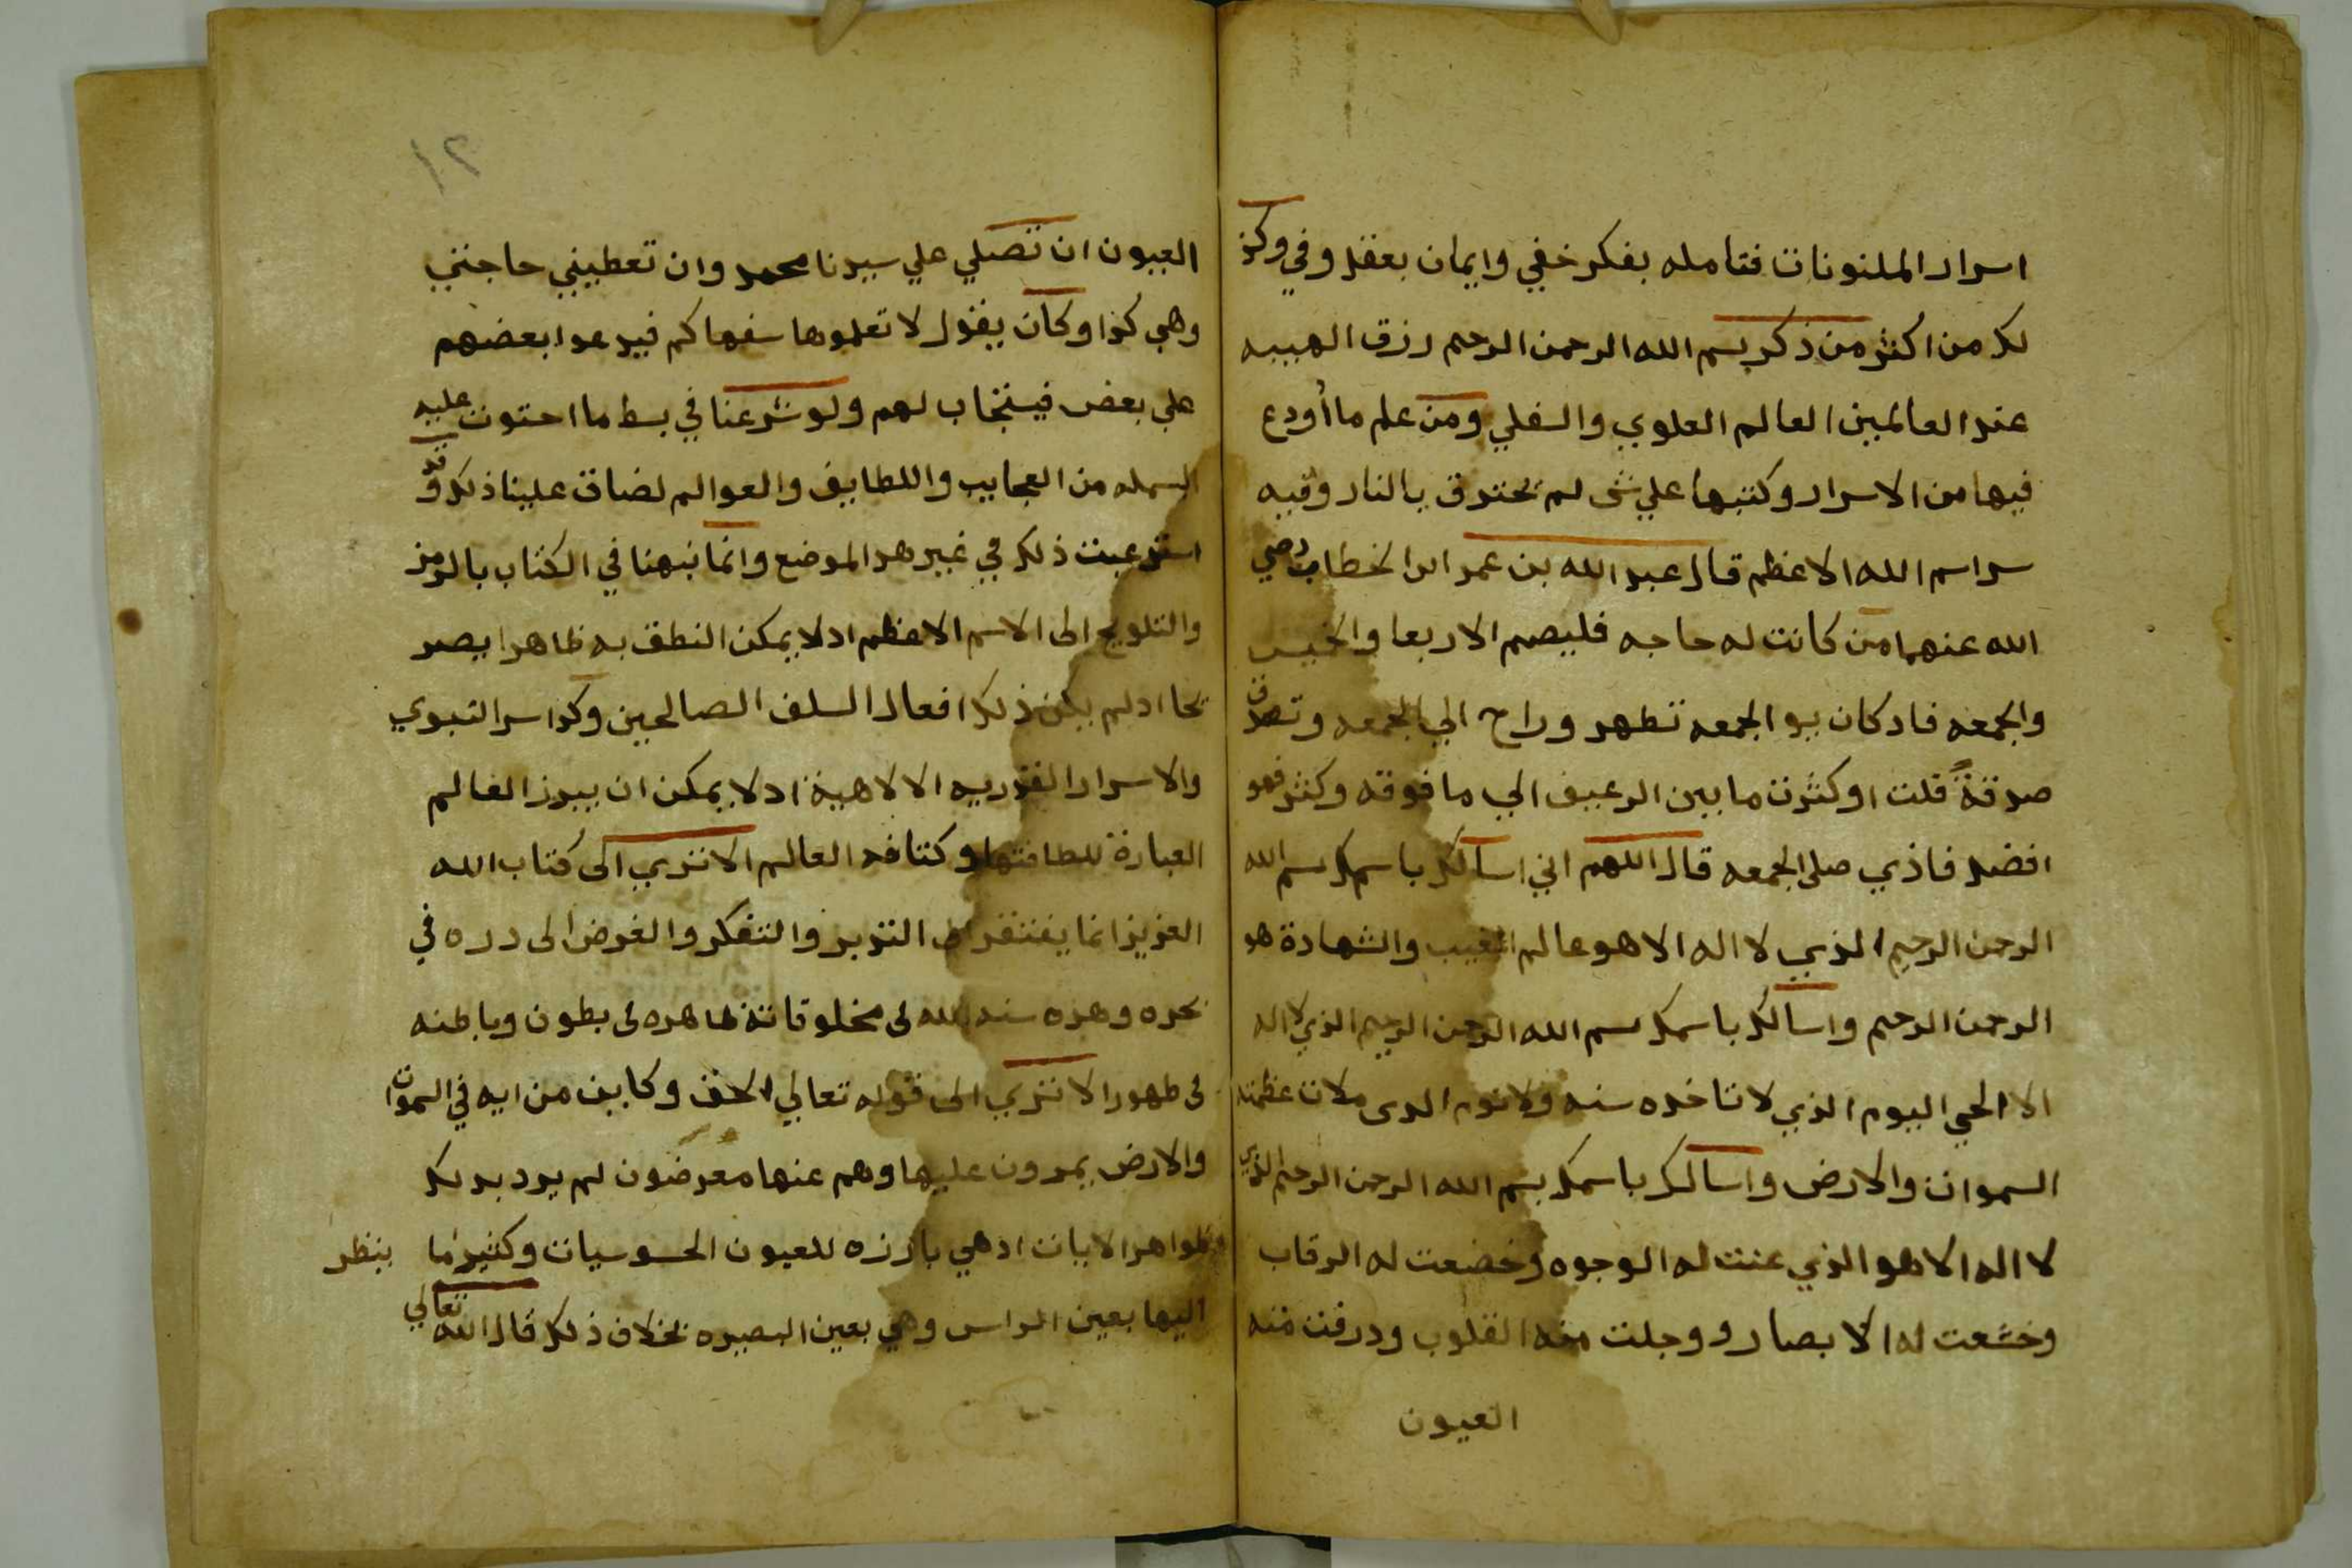 اسرار الملنونات فتامله بفكر خفي وايمان بعقل وفي وكذ
لك من اكثر من ذكر بسم الله الرحمن الرحيم رزق الهيبه
عند العالمين العالم العلوي والسفلي ومن علم ما أودع
فيها من الاسرار وكتبها علي شى لم يحترق بالنار وفيه
سر اسم الله الاعظم قال عبد الله بن عمر ابن الخطاب رضي
الله عنهما من كانت له حاجه فليصم الاربعا والخميس
والجمعه فاد كان يو الجمعه تطهر وراح الي الجمعه وتصدق
صدقةً قلت او كثرت ما بين الرعيف الي ما فوقه وكثر فهو
افضل فاذي صلى الجمعه قال اللهم اني اسالك باسمك بسم الله
الرحمن الرحيم الذي لا اله الا هو عالم الغيب والشهادة هو
الرحمن الرحيم واسالك باسمك بسم الله الرحمن الرحيم الذي لا اله
الا الحي اليوم الذي لا تاخده سنه ولا نوم الدى ملات عظمته
السموات والارض واسالك باسمك بسم الله الرحمن الرحيم الذي
لا اله الا هو الذي عنت له الوجوه وخضعت له الرقاب
وخشعت له الا بصار و وجلت منه القلوب ودرفت منه
العيون
١٢
العيون ان تصلي علي سيدنا محمد وان تعطيني حاجتي
وهي كذا وكان يقول لا تعلموها سفهاكم فيدعوا بعضهم
علي بعض فيستجاب لهم ولو شرعنا في بسط ما احتوت عليه
البسمله من العجايب واللطايف والعوالم لضاق علينا ذلك وقد
استدعيت ذلك في غير هدا الموضع وانما نبهنا في الكتاب بالرمز
والتلويح الى الاسم الاعظم اد لا يمكن النطق به ظاهرا يصر
يحا اد لم يكن ذلك افعال السلف الصالحين وكدا سر النبوي
والاسرار القدريه الالاهية اد لا يمكن ان يبرز العالم
العبارة للطافتها وكتافه العالم الا تري الى كتاب الله
العزيز انما يفتقر الى التدبر والتفكر والغرض الى درره في
بحره وهده سنه الله فى مخلوقاته ظاهره فى بطون وباطنه
فى ظهور الا تري الى قوله تعالي الحق وكاين من ايه في السموات
والارض يمرون عليها وهم عنها معرضون لم يرد بدلك
ظواهر الايات اد هي بارزه للعيون الحسوسيات وكثير ما ينظر
اليها بعين الراس وهي بعين البصيره بخلاف ذلك قال الله تعالي